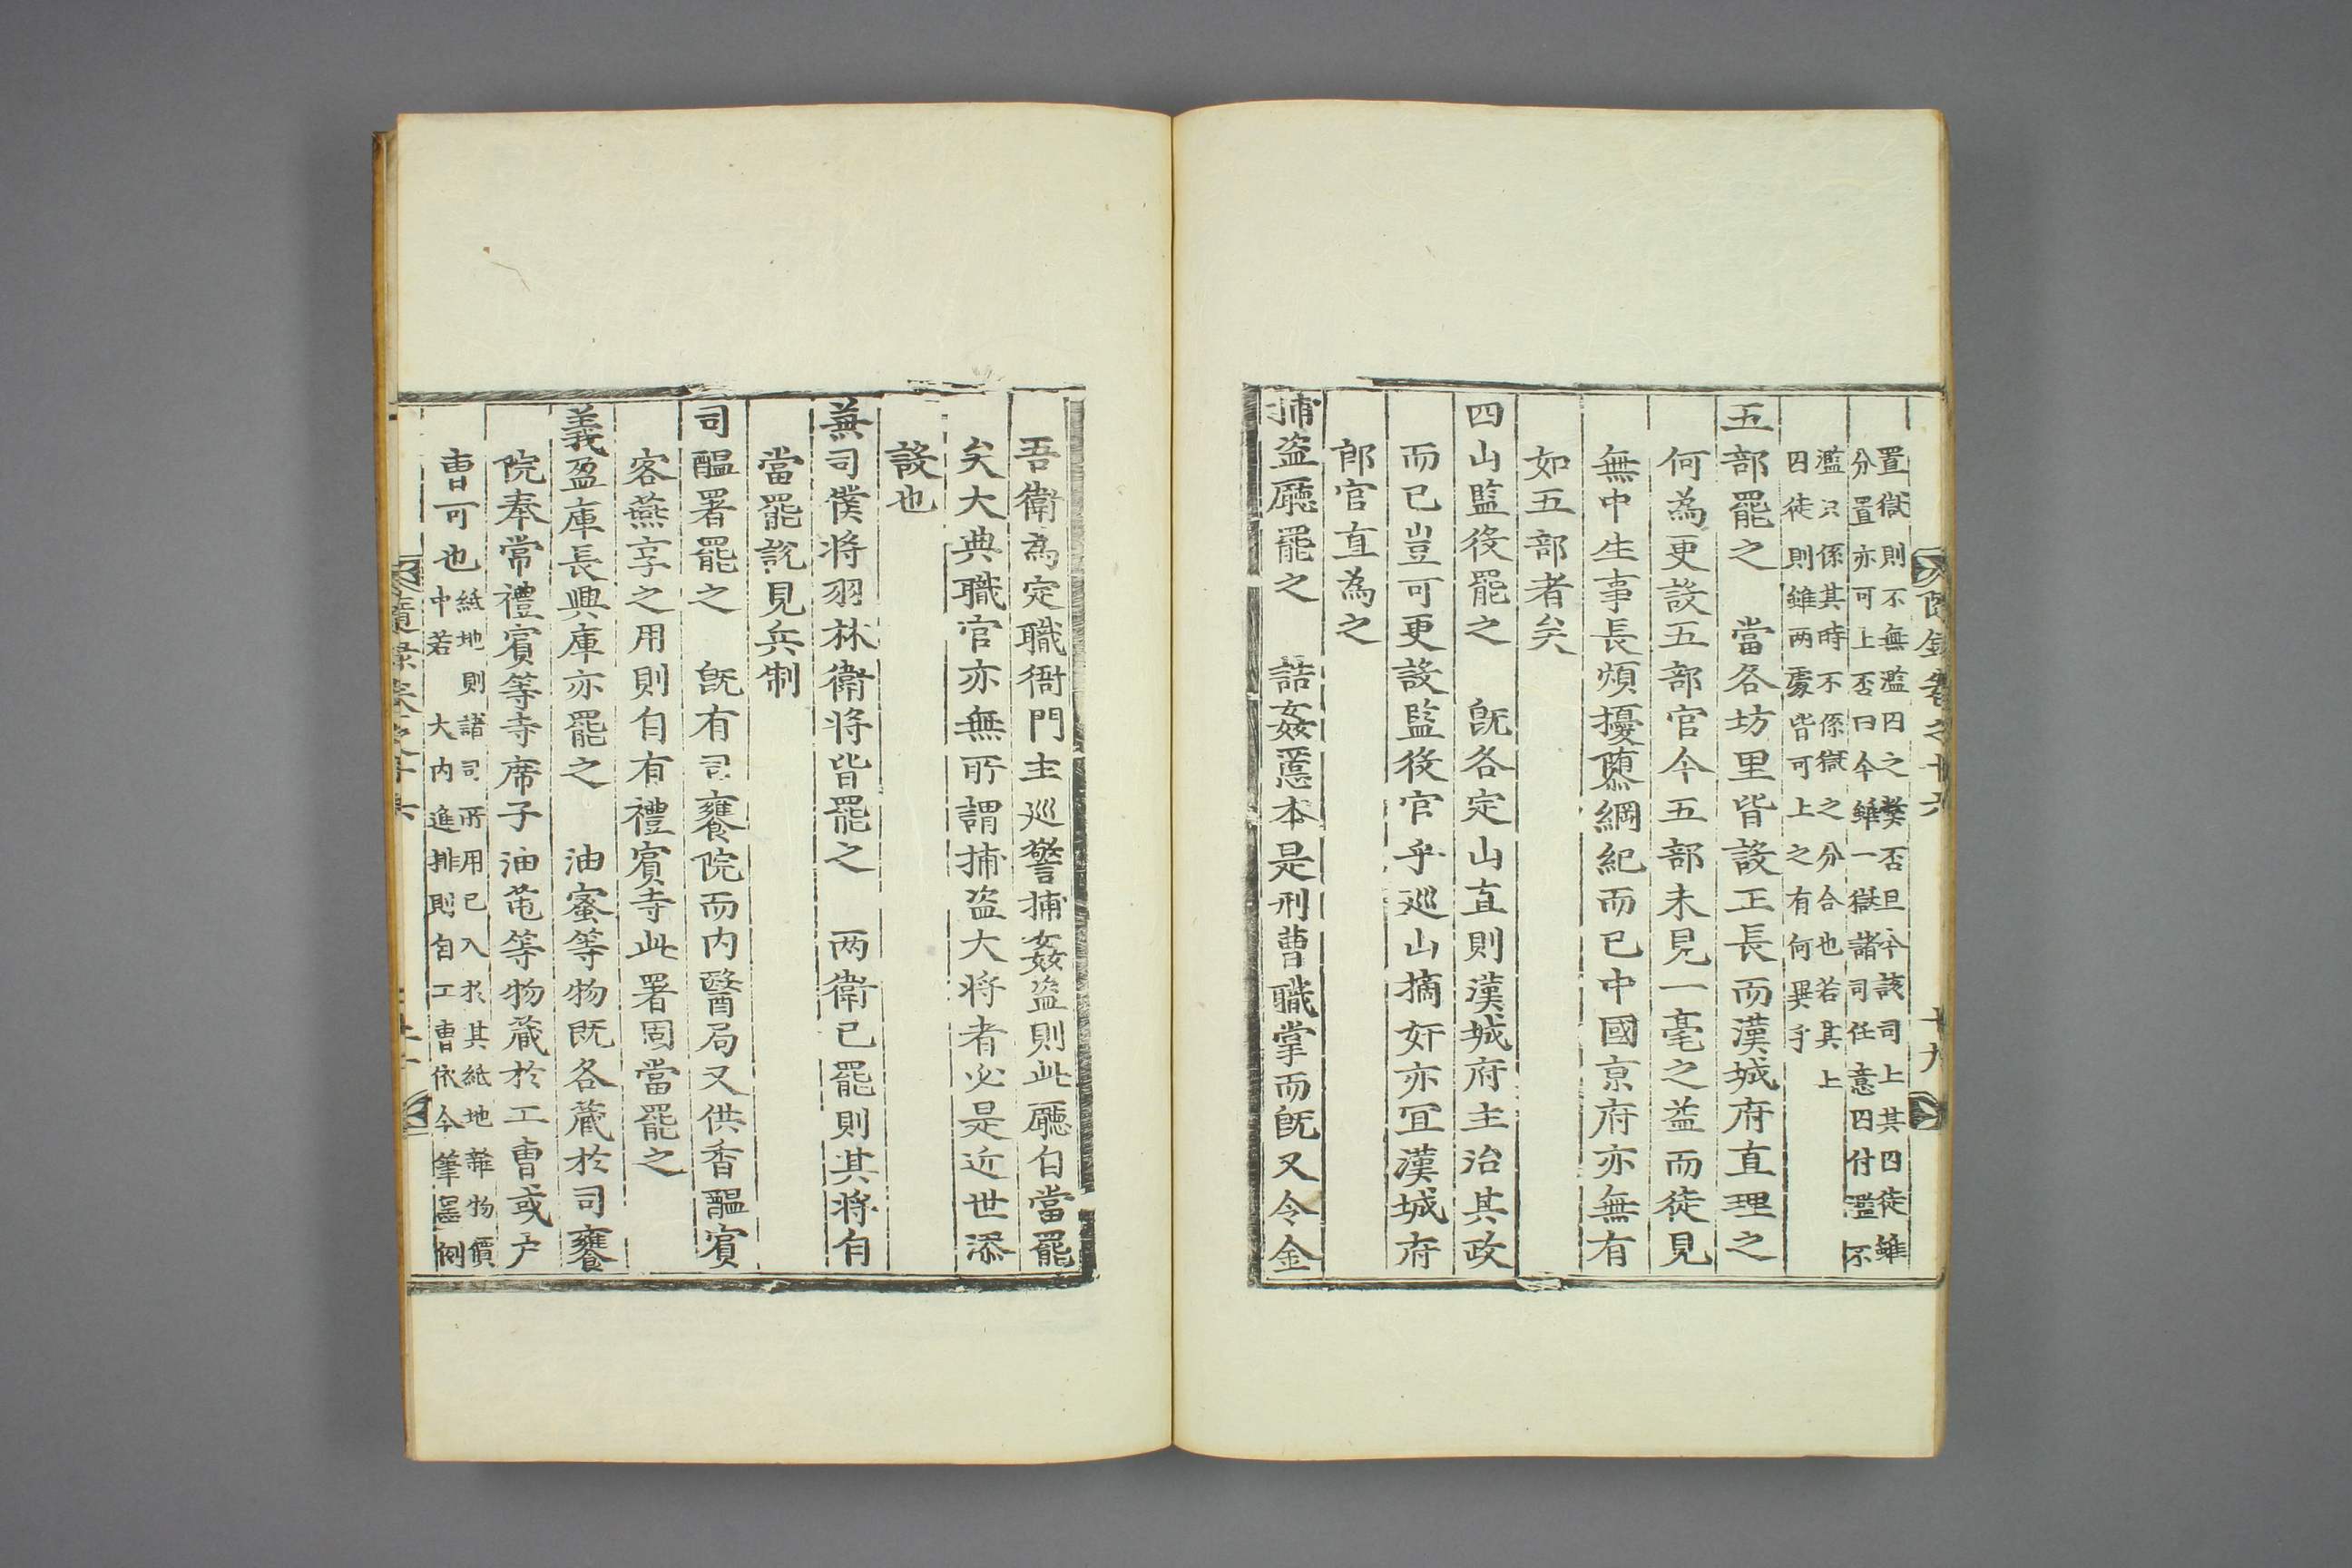 隨錄卷之十六 十九
置獄則不無濫囚之弊否且今該司上其囚徒雖
分置亦可上否曰今雖一獄諸司任意囚付濫不
濫只係其時不係獄之分合也若其上
囚徒則雖两處皆可上之有何異乎
五部罷之 當各坊里皆設正長而漢城府直理之
何為更設五部官今五部未見一毫之益而徒見
無中生事長煩擾隳綱紀而已中國京府亦無有
如五部者矣
四山監役罷之 旣各定山直則漢城府主治其政
而已豈可更設監役官乎巡山摘奸亦宜漢城府
郎官直為之
捕盜廳罷之 詰姦慝本是刑曹職掌而旣又令金
吾衛為定職衙門主巡警捕姦盜則此廳自當罷
矣大典職官亦無所謂捕盜大將者必是近世添
設也
兼司僕将羽林衛将皆罷之 两衛已罷則其将自
當罷說見兵制
司醞署罷之 旣有司饔院而内醫局又供香醞賓
客燕享之用則自有禮賓寺此署固當罷之
義盈庫長興庫亦罷之 油蜜等物既各藏於司饔
院奉常禮賓等寺席子油芚等物藏於工曹或户
曹可也
紙地則諸司所用已入於其紙地雜物價
中若 大内進排則自工曹依今筆墨例
隨錄卷之十六